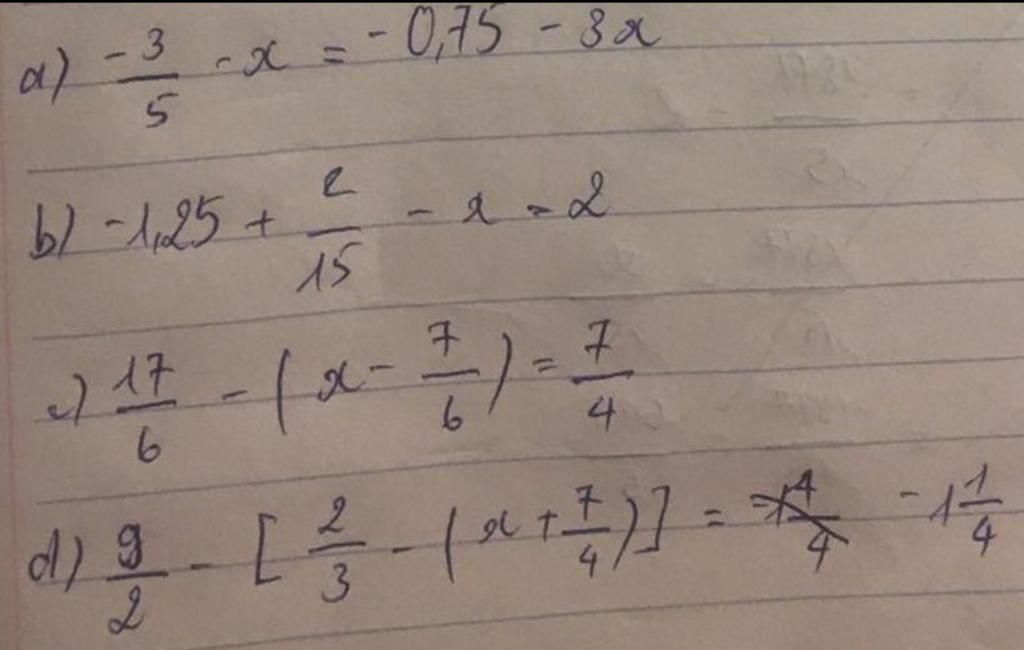 a) -3/5 - x = -0,75 - 3x
b) -1,25 + 2/15 - x = 2
c) 17/6 - (x - 7/6) = 7/4
d) 9/2 - [2/3 - (x + 7/4)] = -1 1/4